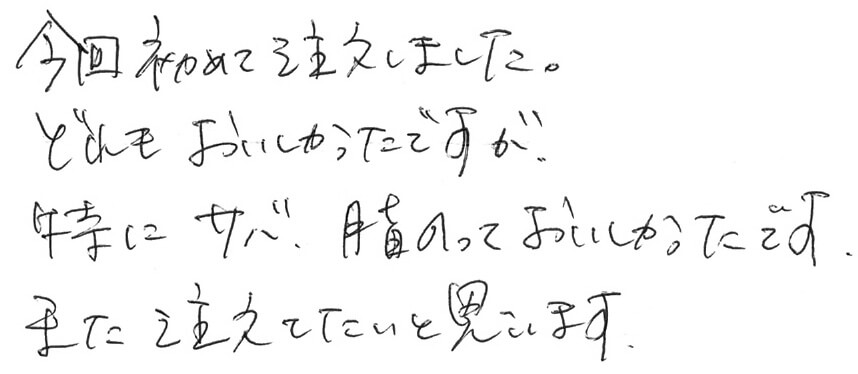 今回初めて注文しました。
どれもおいしかったですが、
特にサバ、脂のっておいしかったです.
また注文してたいと思います.